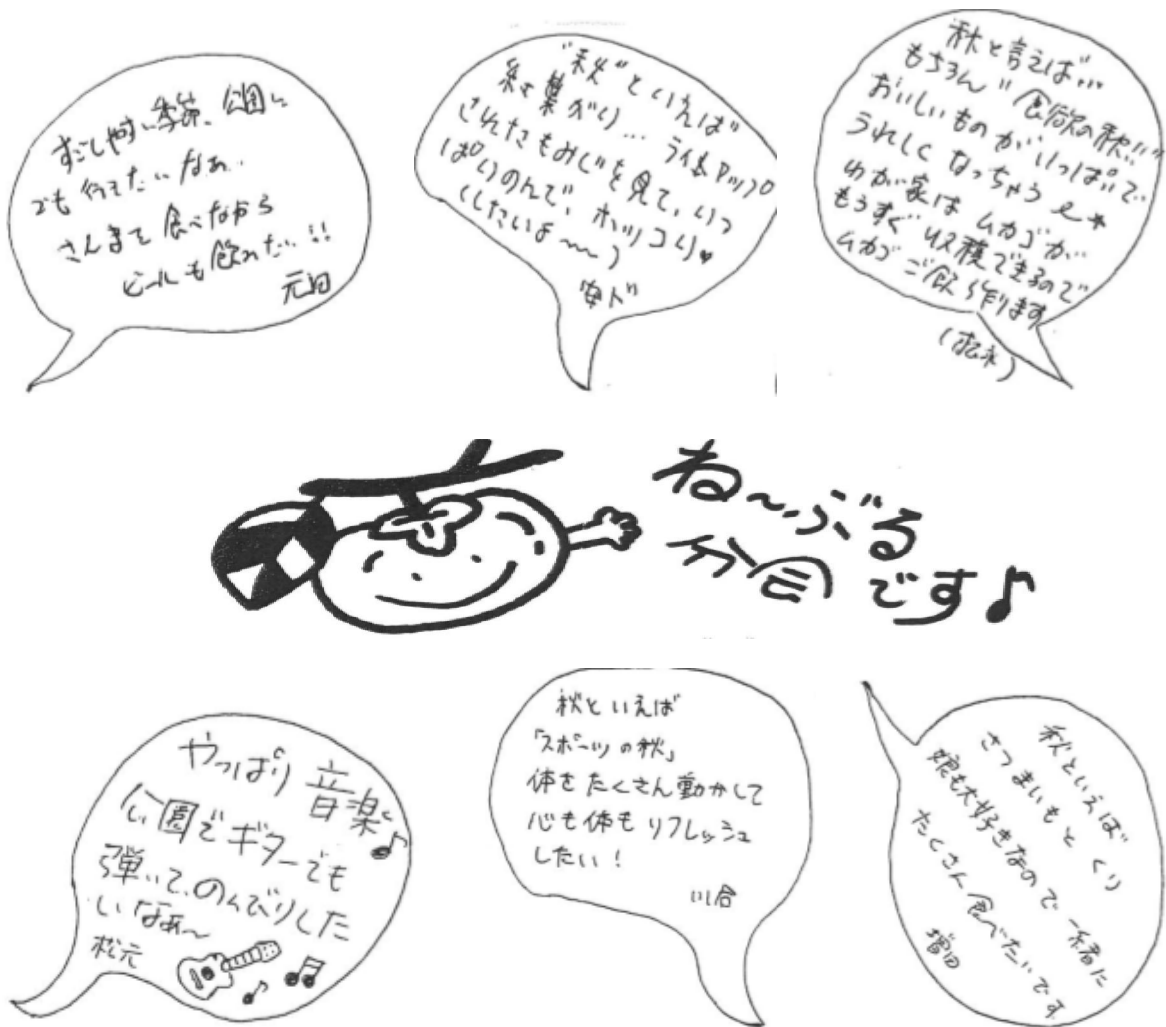 すごしやすい季節、公園に
でも行きたいなぁ..
さんまを食べながら
ビールも飲みたい!!
元田
"秋"といえば
紅葉がり... ライトアップ
されたもみじを見て、いっ
ぱいのんで、ホッコリ♥
(したいよ〜〜)
安ド
秋と言えば...
もちろん"食欲の秋!!"
おいしいものがいっぱいで
うれしくなっちゃう
わが家はムカゴが
もうすぐ収穫できるので
ムカゴご飯作ります
(松永)
ね〜ぶる
分会です♪
やっぱり音楽♪
公園でギターでも
弾いて、のんびりした
いなぁ〜
松元
秋といえば
「スポーツの秋」
体をたくさん動かして
心も体もリフレッシュ
したい!
いし合
秋といえば
さつまいもとくり
娘も大好きなので一緒に
たくさん食べたいです
増田